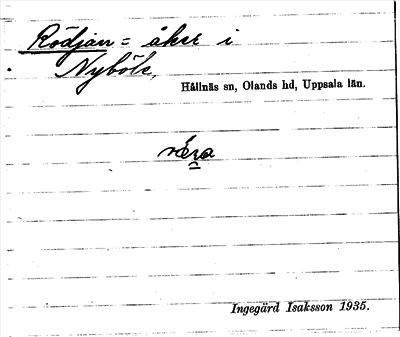 Rödjan = åker i
Nyböle,
Hållnäs sn, Olands hd, Uppsala län.
Ingegärd Isaksson 1935.